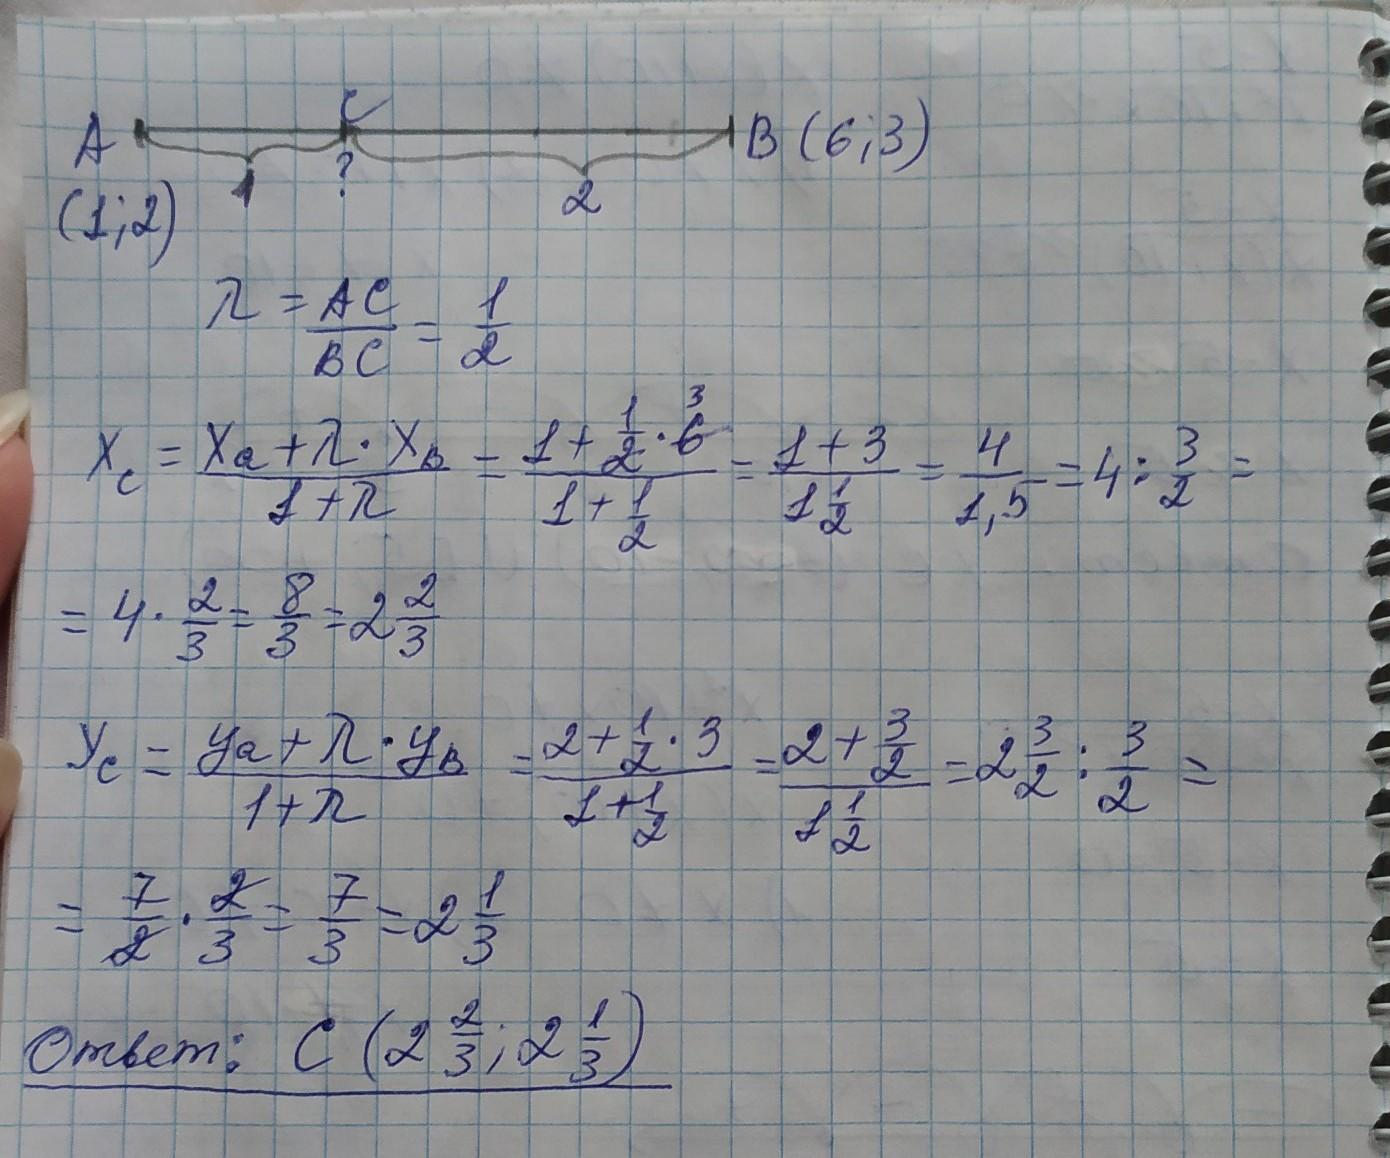 A C B (6;3)
(1;2) 1 ? 2
λ = AC/BC = 1/2
Xc = (Xa + λ · Xв)/(1 + λ) = (1 + 1/2 · 6 3)/(1 + 1/2) = (1 + 3)/(1 1/2) = 4/1,5 = 4 : 3/2 =
= 4 · 2/3 = 8/3 = 2 2/3
Yc = (ya + λ · yв)/(1 + λ) = (2 + 1/2 · 3)/(1 + 1/2) = (2 + 3/2)/(1 1/2) = 2 3/2 : 3/2 =
= 7/2 · 2/3 = 7/3 = 2 1/3
Ответ: C (2 2/3; 2 1/3)